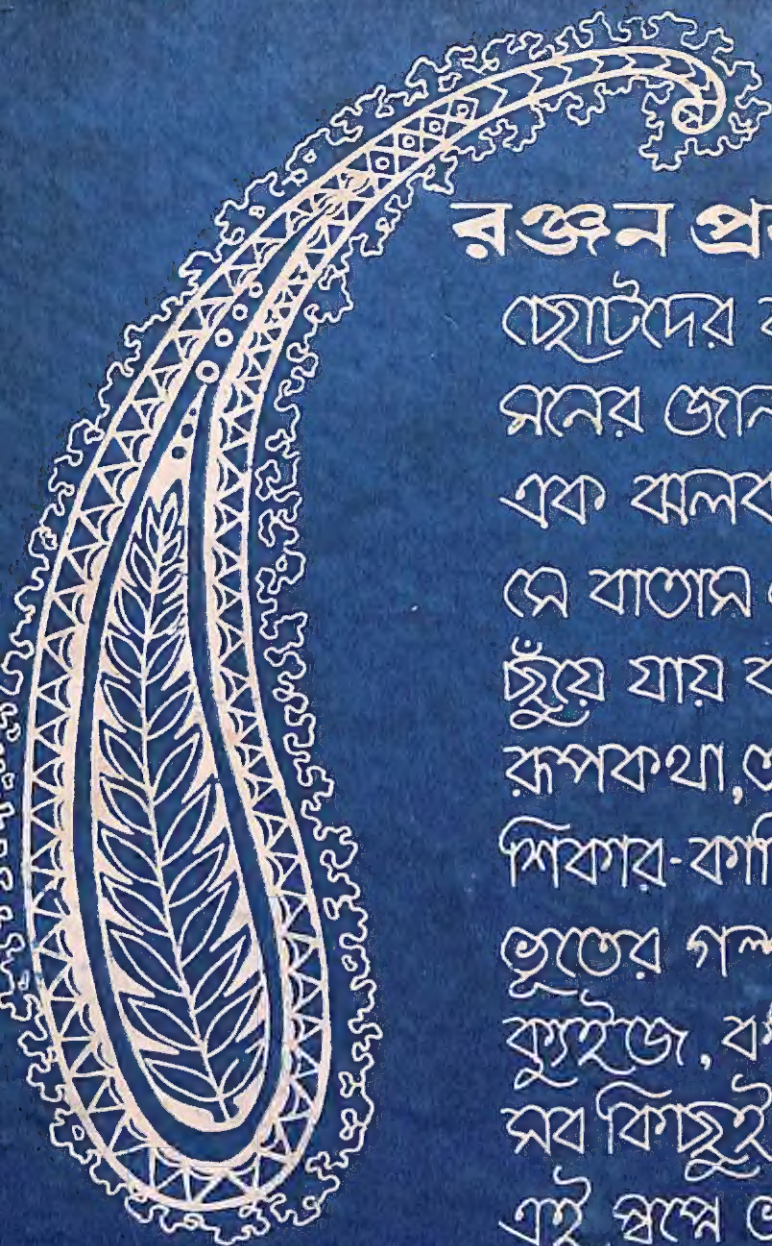 রঞ্জন প্র
ছোটদের
মনের জান
এক ঝলক
সে বাতাস
ছুঁয়ে যায়
রূপকথা,
শিকার-কাহি
ভূতের গল্প
ক্যুইজ,
সব কিছুই
এই স্বপ্নে